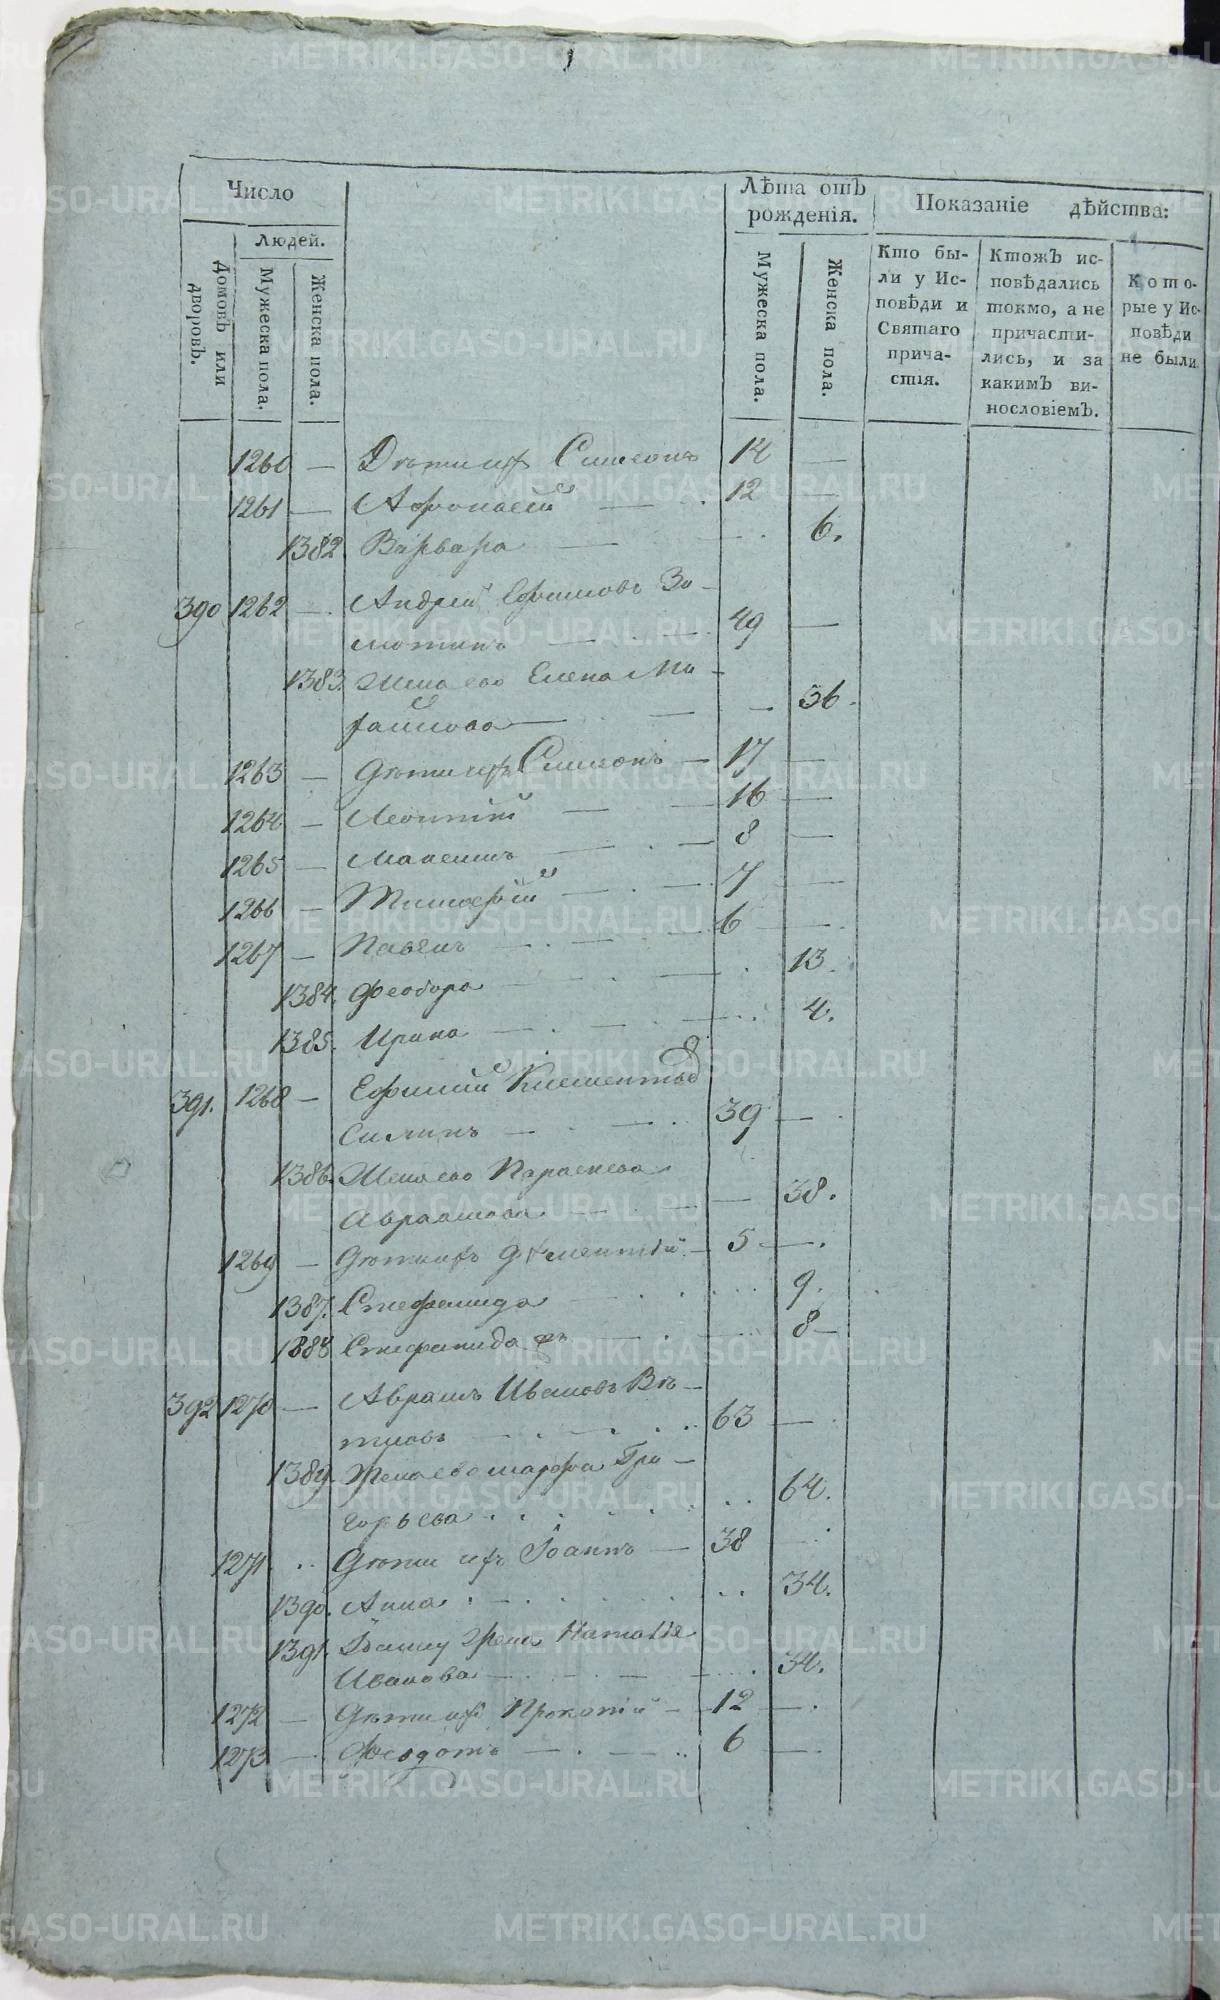 Число
Лѣта отъ рожденія.
Показаніе дѣйства:
Людей.
Домовъ или дворовъ.
Мужеска пола.
Женска пола.
Мужеска пола.
Женска пола.
Кто бы-
ли у Ис-
повѣди и
Святаго
прича-
стія.
Ктожъ ис-
повѣдались
токмо, а не
причасти-
лись, и за
какимъ ви-
нословіемъ.
Кото-
рые у Ис-
повѣди
не были.
1260 — Дѣти ихъ Симеонъ 14 —
1261 — Афонасей — 12 —
1382 Варвара — 6.
390 1262 — Андрей Ефимовъ Зо-
лотинъ — 49 —
1383. Жена ево Елена Ми-
хайлова — 56.
1263 — Дѣти ихъ Симеонъ — 17 —
1264 — Леонтій — 16 —
1265 — Максимъ — 8 —
1266 — Тимофей — 7 —
1267 — Павелъ — 6 —
1384. Феодора — 13.
1385. Ирина — 4.
391. 1268 — Ефимій Клементьев
Силинъ — 39 —
1386. Жена ево Параскева
Авраамова — 38.
1269 — Дѣти ихъ — 5 —
1387. Степанида — 9.
1388 Степанида — 8 —
392 1270 — Аврамъ Ивановъ Вѣ-
тловъ — 63 —
1389. Жена ево Марфа Гри-
горьева — 64.
1271. Дѣти ихъ Іоаннъ — 38
1390. Анна — 34.
1391. Іоанну жена Наталія
Иванова — 34.
1272 — Дѣти ихъ Прокопій — 12 —
1273 — Феодотъ — 6 —
METRIKI.GASO-URAL.RU